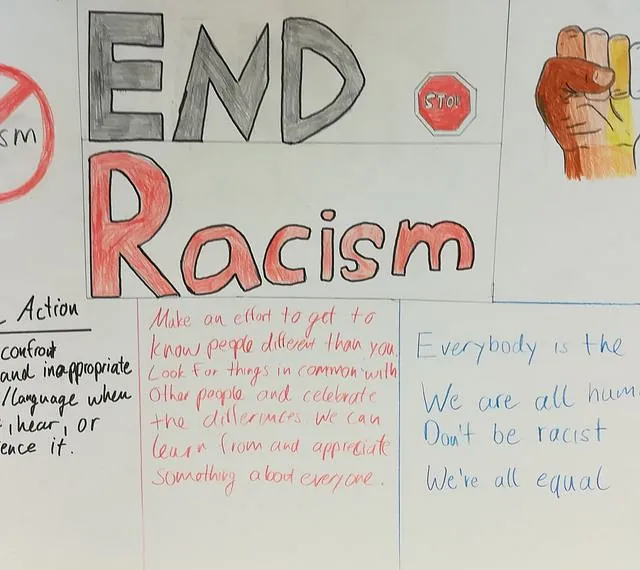 END
STOP
ism
Racism
Action
confront
and inappropriate
/language when
, hear, or
ence it.
Make an effort to get to
know people different than you.
Look for things in common with
other people and celebrate
the differinces. We can
learn from and appreciate
something about everyone.
Everybody is the
We are all hum
Don't be racist
We're all equal